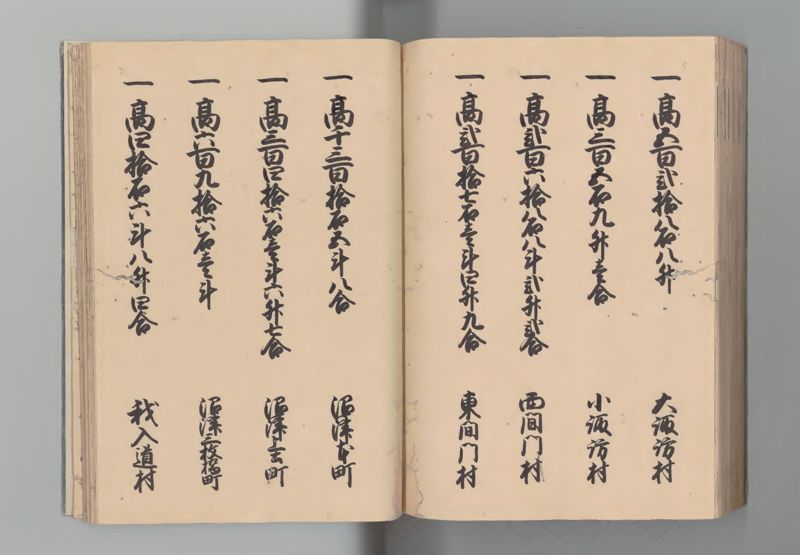 一 高五百弐拾八石八升 大諏訪村
一 高三百五石九升壱合 小諏訪村
一 高弐百六拾八石八斗弐升弐合 西間門村
一 高弐百拾七石壱斗四升九合 東間門村
一 高千三百拾石五斗八合 沼津本町
一 高三百四拾六石壱斗六升七合 沼津上土町
一 高六百九拾六石壱斗 沼津三枚橋町
一 高四拾石六斗八升四合 我入道村